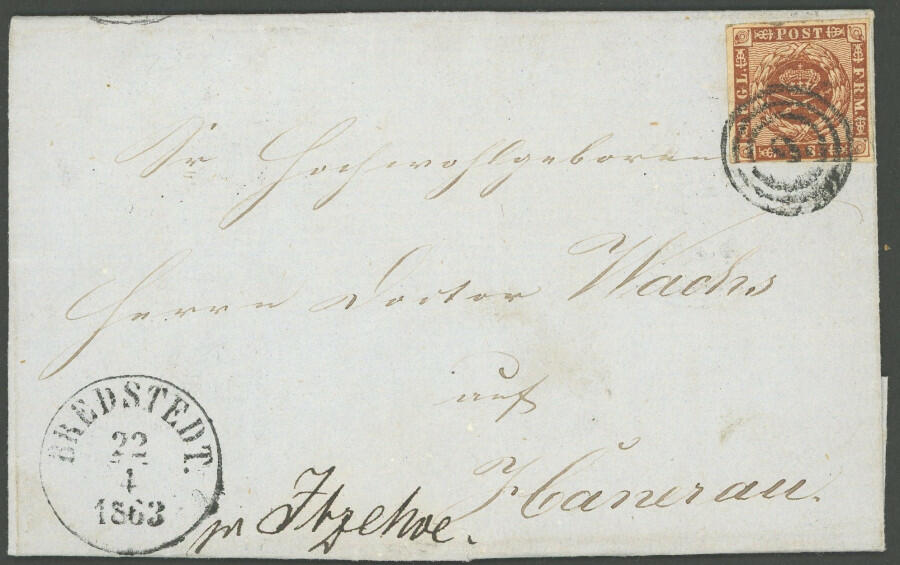 POST
FRM.
Sr Hochwohlgeboren
Herrn Doctor Wachs
auf
Hanerau.
pr Itzehoe.
BREDSTEDT.
22
4
1863